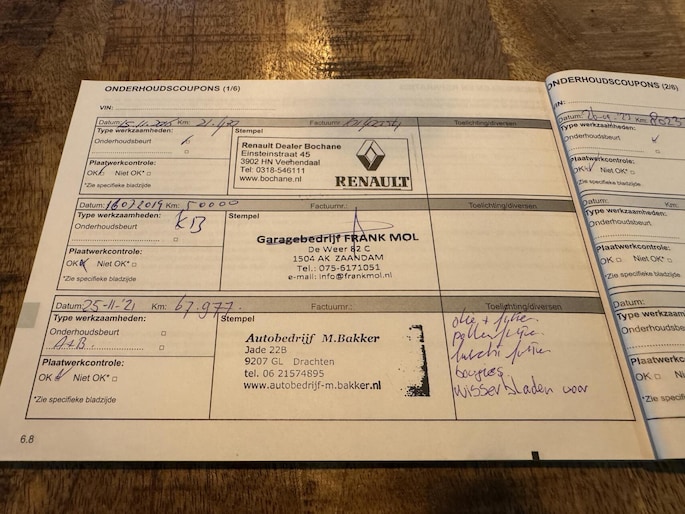 ONDERHOUDSCOUPONS (1/6)
VIN:
Datum: Km: Factuurnr.: Toelichting/diversen
Type werkzaamheden:
Onderhoudsbeurt
Plaatwerkcontrole:
OK Niet OK*
*Zie specifieke bladzijde
Stempel
Renault Dealer Bochane
Einsteinstraat 45
3902 HN Veenendaal
Tel: 0318-546111
www.bochane.nl
RENAULT
Datum: 16072019 Km: 50000 Factuurnr.: Toelichting/diversen
Type werkzaamheden:
Onderhoudsbeurt
Plaatwerkcontrole:
OK Niet OK*
*Zie specifieke bladzijde
Stempel
Garagebedrijf FRANK MOL
De Weer 82 C
1504 AK ZAANDAM
Tel.: 075-6171051
e-mail: info@frankmol.nl
Datum: 25-11-'21 Km: 67.977. Factuurnr.: Toelichting/diversen
Type werkzaamheden:
Onderhoudsbeurt
A+B
Plaatwerkcontrole:
OK Niet OK*
*Zie specifieke bladzijde
Stempel
Autobedrijf M.Bakker
Jade 22B
9207 GL Drachten
tel. 06 21574895
www.autobedrijf-m.bakker.nl
olie + filter
pollenfilter
luchtfilter
bougies
wisserbladen voor
6.8
ONDERHOUDSCOUPONS (2/6)
VIN:
Datum: Km:
Type werkzaamheden:
Onderhoudsbeurt
Plaatwerkcontrole:
OK Niet OK*
*Zie specifieke bladzijde
Datum: Km:
Type werkzaamheden:
Onderhoudsbeurt
Plaatwerkcontrole:
OK Niet OK*
*Zie specifieke bladzijde
Datum:
Type werkzaamh
Onderhoudsbeurt
Plaatwerkcontrole
OK Niet OK*
*Zie specifie